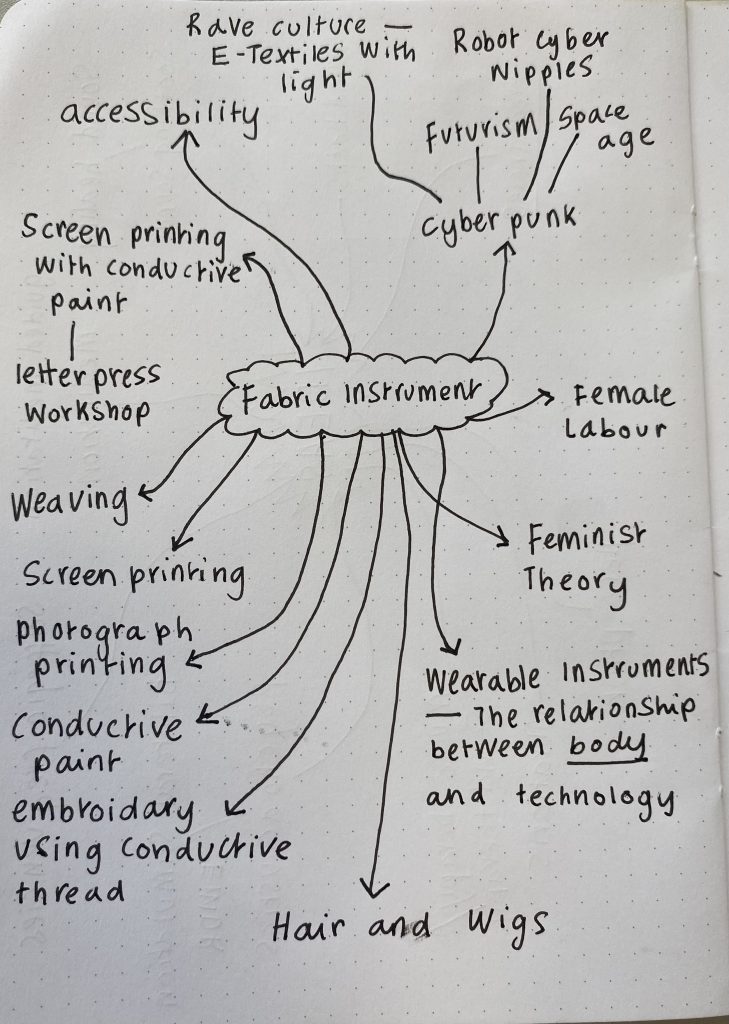 Rave culture —
E-Textiles with
light
Robot cyber
Nipples
Futurism
Space
age
cyber punk
accessibility
Screen printing
with conductive
paint
letterpress
workshop
Fabric Instrument
Female
Labour
Weaving
Feminist
Theory
Screen printing
photograph
printing
Wearable Instruments
— The relationship
between body
and technology
Conductive
paint
embroidary
using conductive
thread
Hair and Wigs